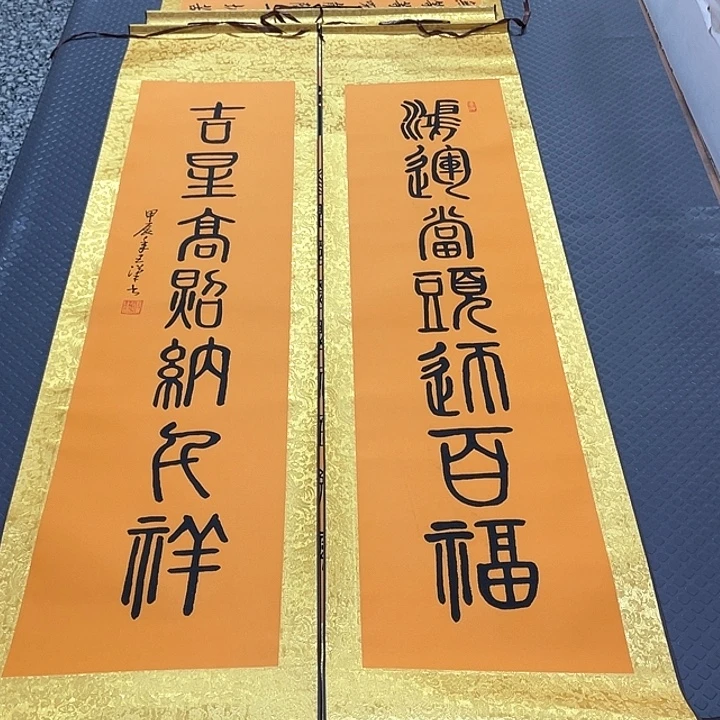 鴻運當頭迎百福
吉星高照納千祥
甲辰年